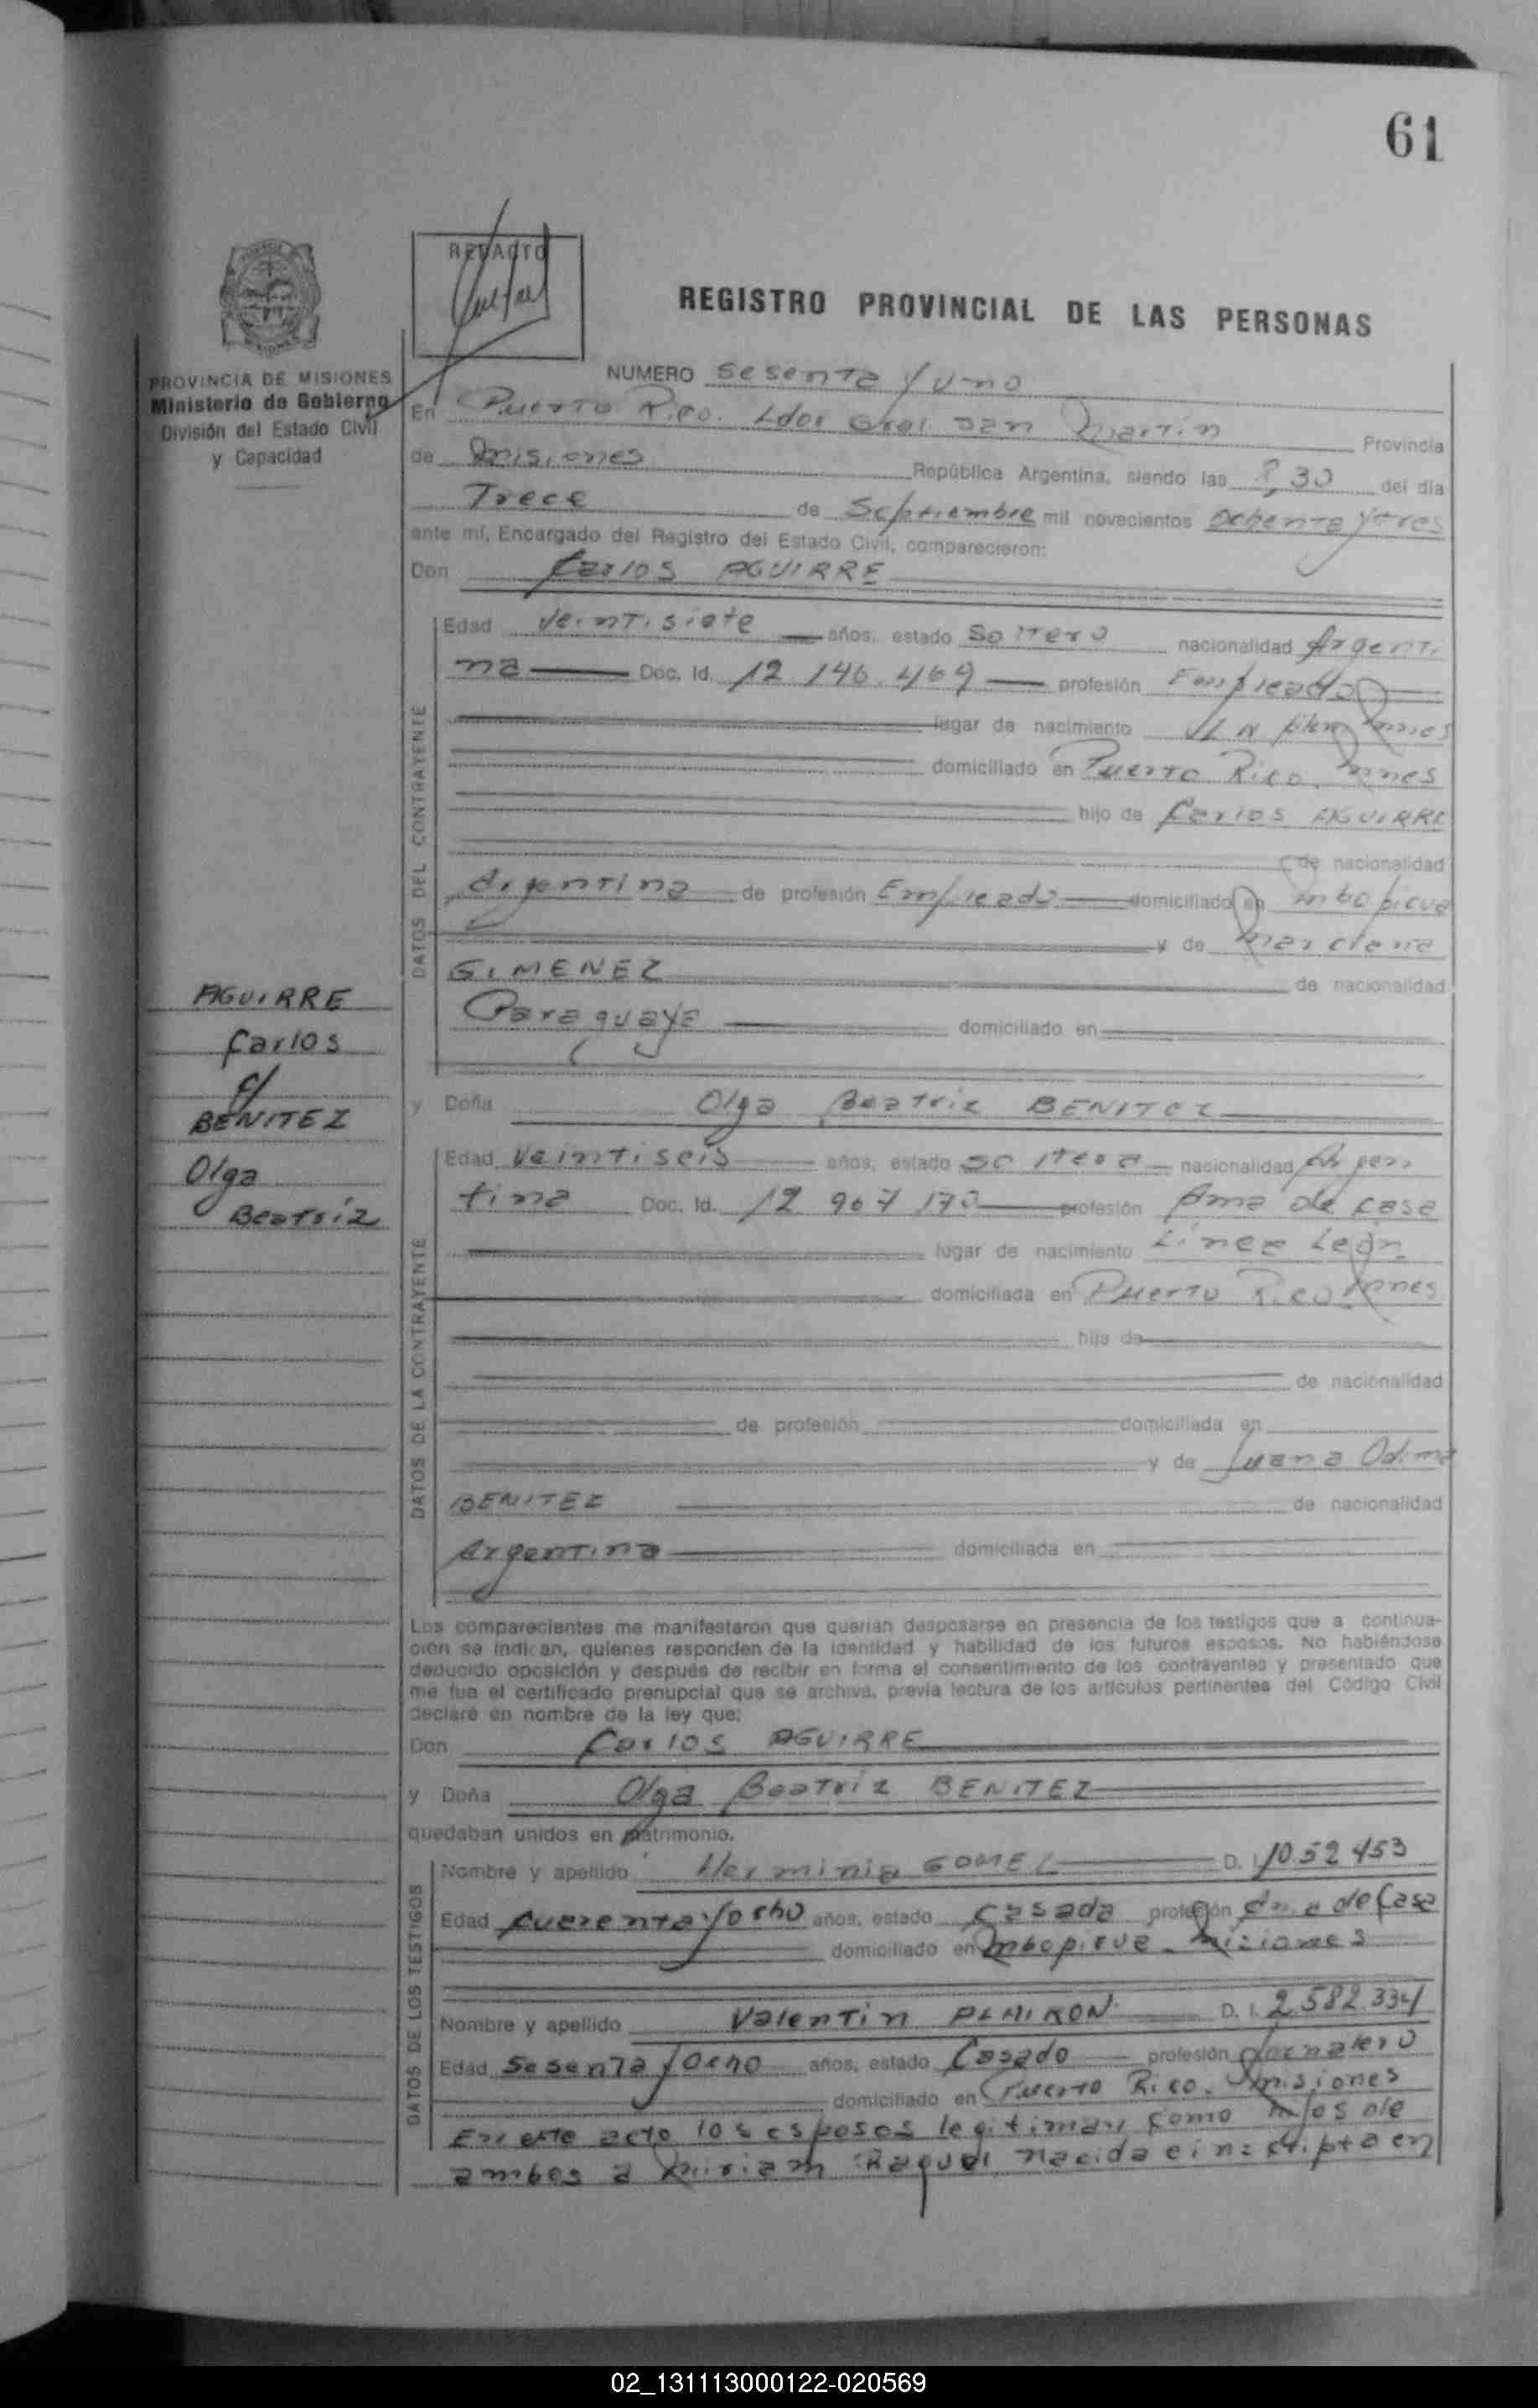 61
REDACTO
REGISTRO PROVINCIAL DE LAS PERSONAS
PROVINCIA DE MISIONES
Ministerio de Gobierno
División del Estado Civil
y Capacidad
NUMERO Sesenta y uno
En Puerto Rico. Ldor Gral. San Martín Provincia
de Misiones República Argentina, siendo las 8,30 del día
Trece de Septiembre mil novecientos ochenta y tres
ante mí, Encargado del Registro del Estado Civil, comparecieron:
Don Carlos AGUIRRE
Edad Veintisiete años, estado Soltero nacionalidad Argenti
na Doc. Id. 12 146.469 profesión Empleado
lugar de nacimiento L N Mnes
domiciliado en Puerto Rico. Mnes
hijo de Carlos AGUIRRE
de nacionalidad
Argentina de profesión Empleado domiciliado en Mbopicua
y de Marciana
GIMENEZ de nacionalidad
Paraguaya domiciliado en
AGUIRRE
Carlos
c/
BENITEZ
Olga
Beatríz
y Doña Olga Beatriz BENITEZ
Edad Veintiseis años, estado soltera nacionalidad Argen
tina Doc. Id. 12 967 170 profesión Ama de casa
lugar de nacimiento Linea León
domiciliada en Puerto Rico Mnes
hija de
de nacionalidad
de profesión domiciliada en
y de Juana
BENITEZ de nacionalidad
Argentina domiciliada en
DATOS DEL CONTRAYENTE
DATOS DE LA CONTRAYENTE
Los comparecientes me manifestaron que querían desposarse en presencia de los testigos que a continua-
ción se indican, quienes responden de la identidad y habilidad de los futuros esposos. No habiéndose
deducido oposición y después de recibir en forma el consentimiento de los contrayentes y presentado que
me fue el certificado prenupcial que se archiva, previa lectura de los artículos pertinentes del Código Civil
declaré en nombre de la ley que:
Don Carlos AGUIRRE
y Doña Olga Beatriz BENITEZ
quedaban unidos en matrimonio.
Nombre y apellido Herminia GOMEZ D. I. 1052453
Edad Cuarenta y ocho años, estado Casada profesión Ama de Casa
domiciliado en Mbopicua. Misiones
Nombre y apellido Valentin D. I. 2.582.334
Edad Sesenta y Ocho años, estado Casado profesión Jornalero
domiciliado en Puerto Rico. Misiones
DATOS DE LOS TESTIGOS
En este acto los esposos legitiman como hijos de
ambos a Miriam Raquel nacida e inscripta en
02_131113000122-020569